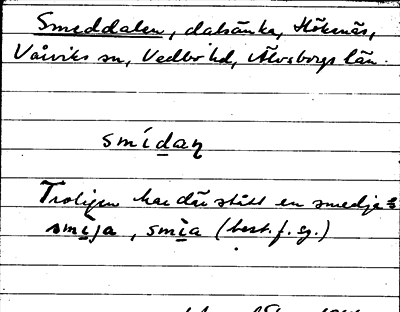 Smeddalen, dalsänka, Höknäs,
Vårviks sn, Vedbo hd, Älvsborgs län.
smídaη
Troligen har där stått en smedja =
smìja, smìa (best. f. sg.)